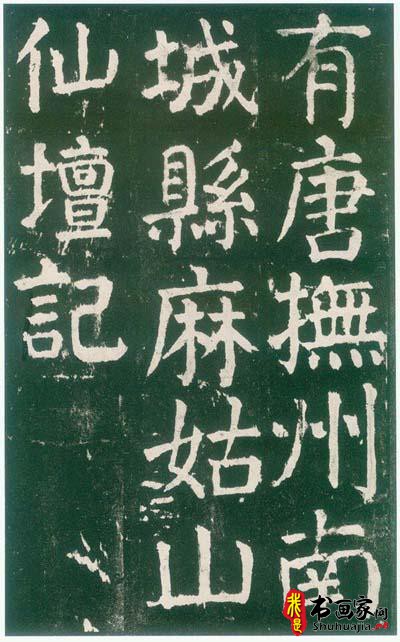 有唐撫州南
城縣麻姑山
仙壇記
我是
书画家网
Shuhuajia.net